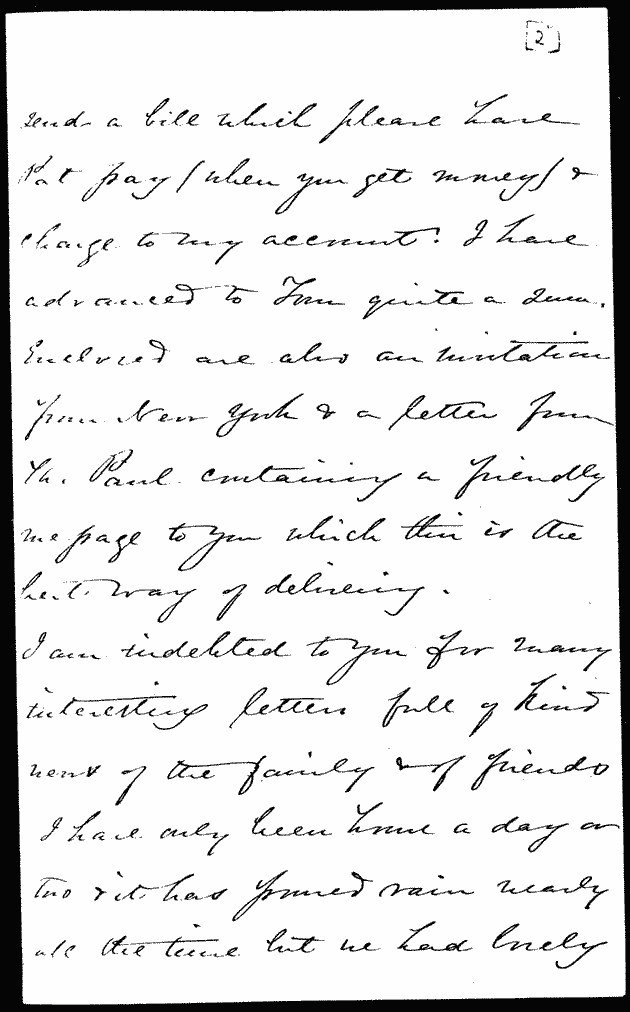 [2]
send a bill which please have
Pat pay (when you get money) &
charge to my account. I have
advanced to Tom quite a sum.
Enclosed are also an invitation
from New York & a letter from
Paul containing a friendly
message to you which this is the
best way of delivering.
I am indebted to you for many
interesting letters full of kind
news of the family & of friends
I have only been home a day or
two & it has poured rain nearly
all the time but we had lovely